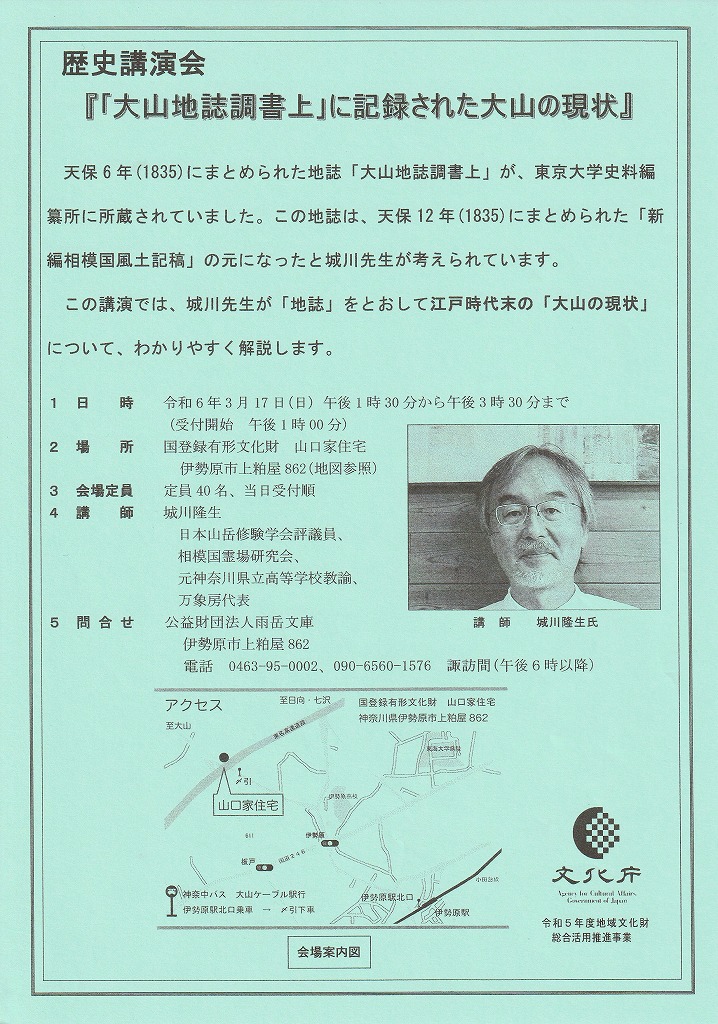 歴史講演会
『「大山地誌調書上」に記録された大山の現状』
天保6年(1835)にまとめられた地誌「大山地誌調書上」が、東京大学史料編
纂所に所蔵されていました。この地誌は、天保12年(1835)にまとめられた「新
編相模国風土記稿」の元になったと城川先生が考えられています。
この講演では、城川先生が「地誌」をとおして江戸時代末の「大山の現状」
について、わかりやすく解説します。
1 日 時 令和6年3月17日(日) 午後1時30分から午後3時30分まで
(受付開始 午後1時00分)
2 場 所 国登録有形文化財 山口家住宅
伊勢原市上粕屋862(地図参照)
3 会場定員 定員40名、当日受付順
4 講 師 城川隆生
日本山岳修験学会評議員、
相模国霊場研究会、
元神奈川県立高等学校教諭、
万象房代表
講 師 城川隆生氏
5 問合せ 公益財団法人雨岳文庫
伊勢原市上粕屋862
電話 0463-95-0002、090-6560-1576 諏訪間(午後6時以降)
アクセス
至日向・七沢
国登録有形文化財 山口家住宅
神奈川県伊勢原市上粕屋862
至大山
東名高速道路
〆引
山口家住宅
611
伊勢原
板戸
国道246
小田急線
神奈中バス 大山ケーブル駅行
伊勢原駅北口乗車 → 〆引下車
伊勢原駅北口
伊勢原駅
会場案内図
文化庁
Agency for Cultural Affairs,
Government of Japan
令和5年度地域文化財
総合活用推進事業